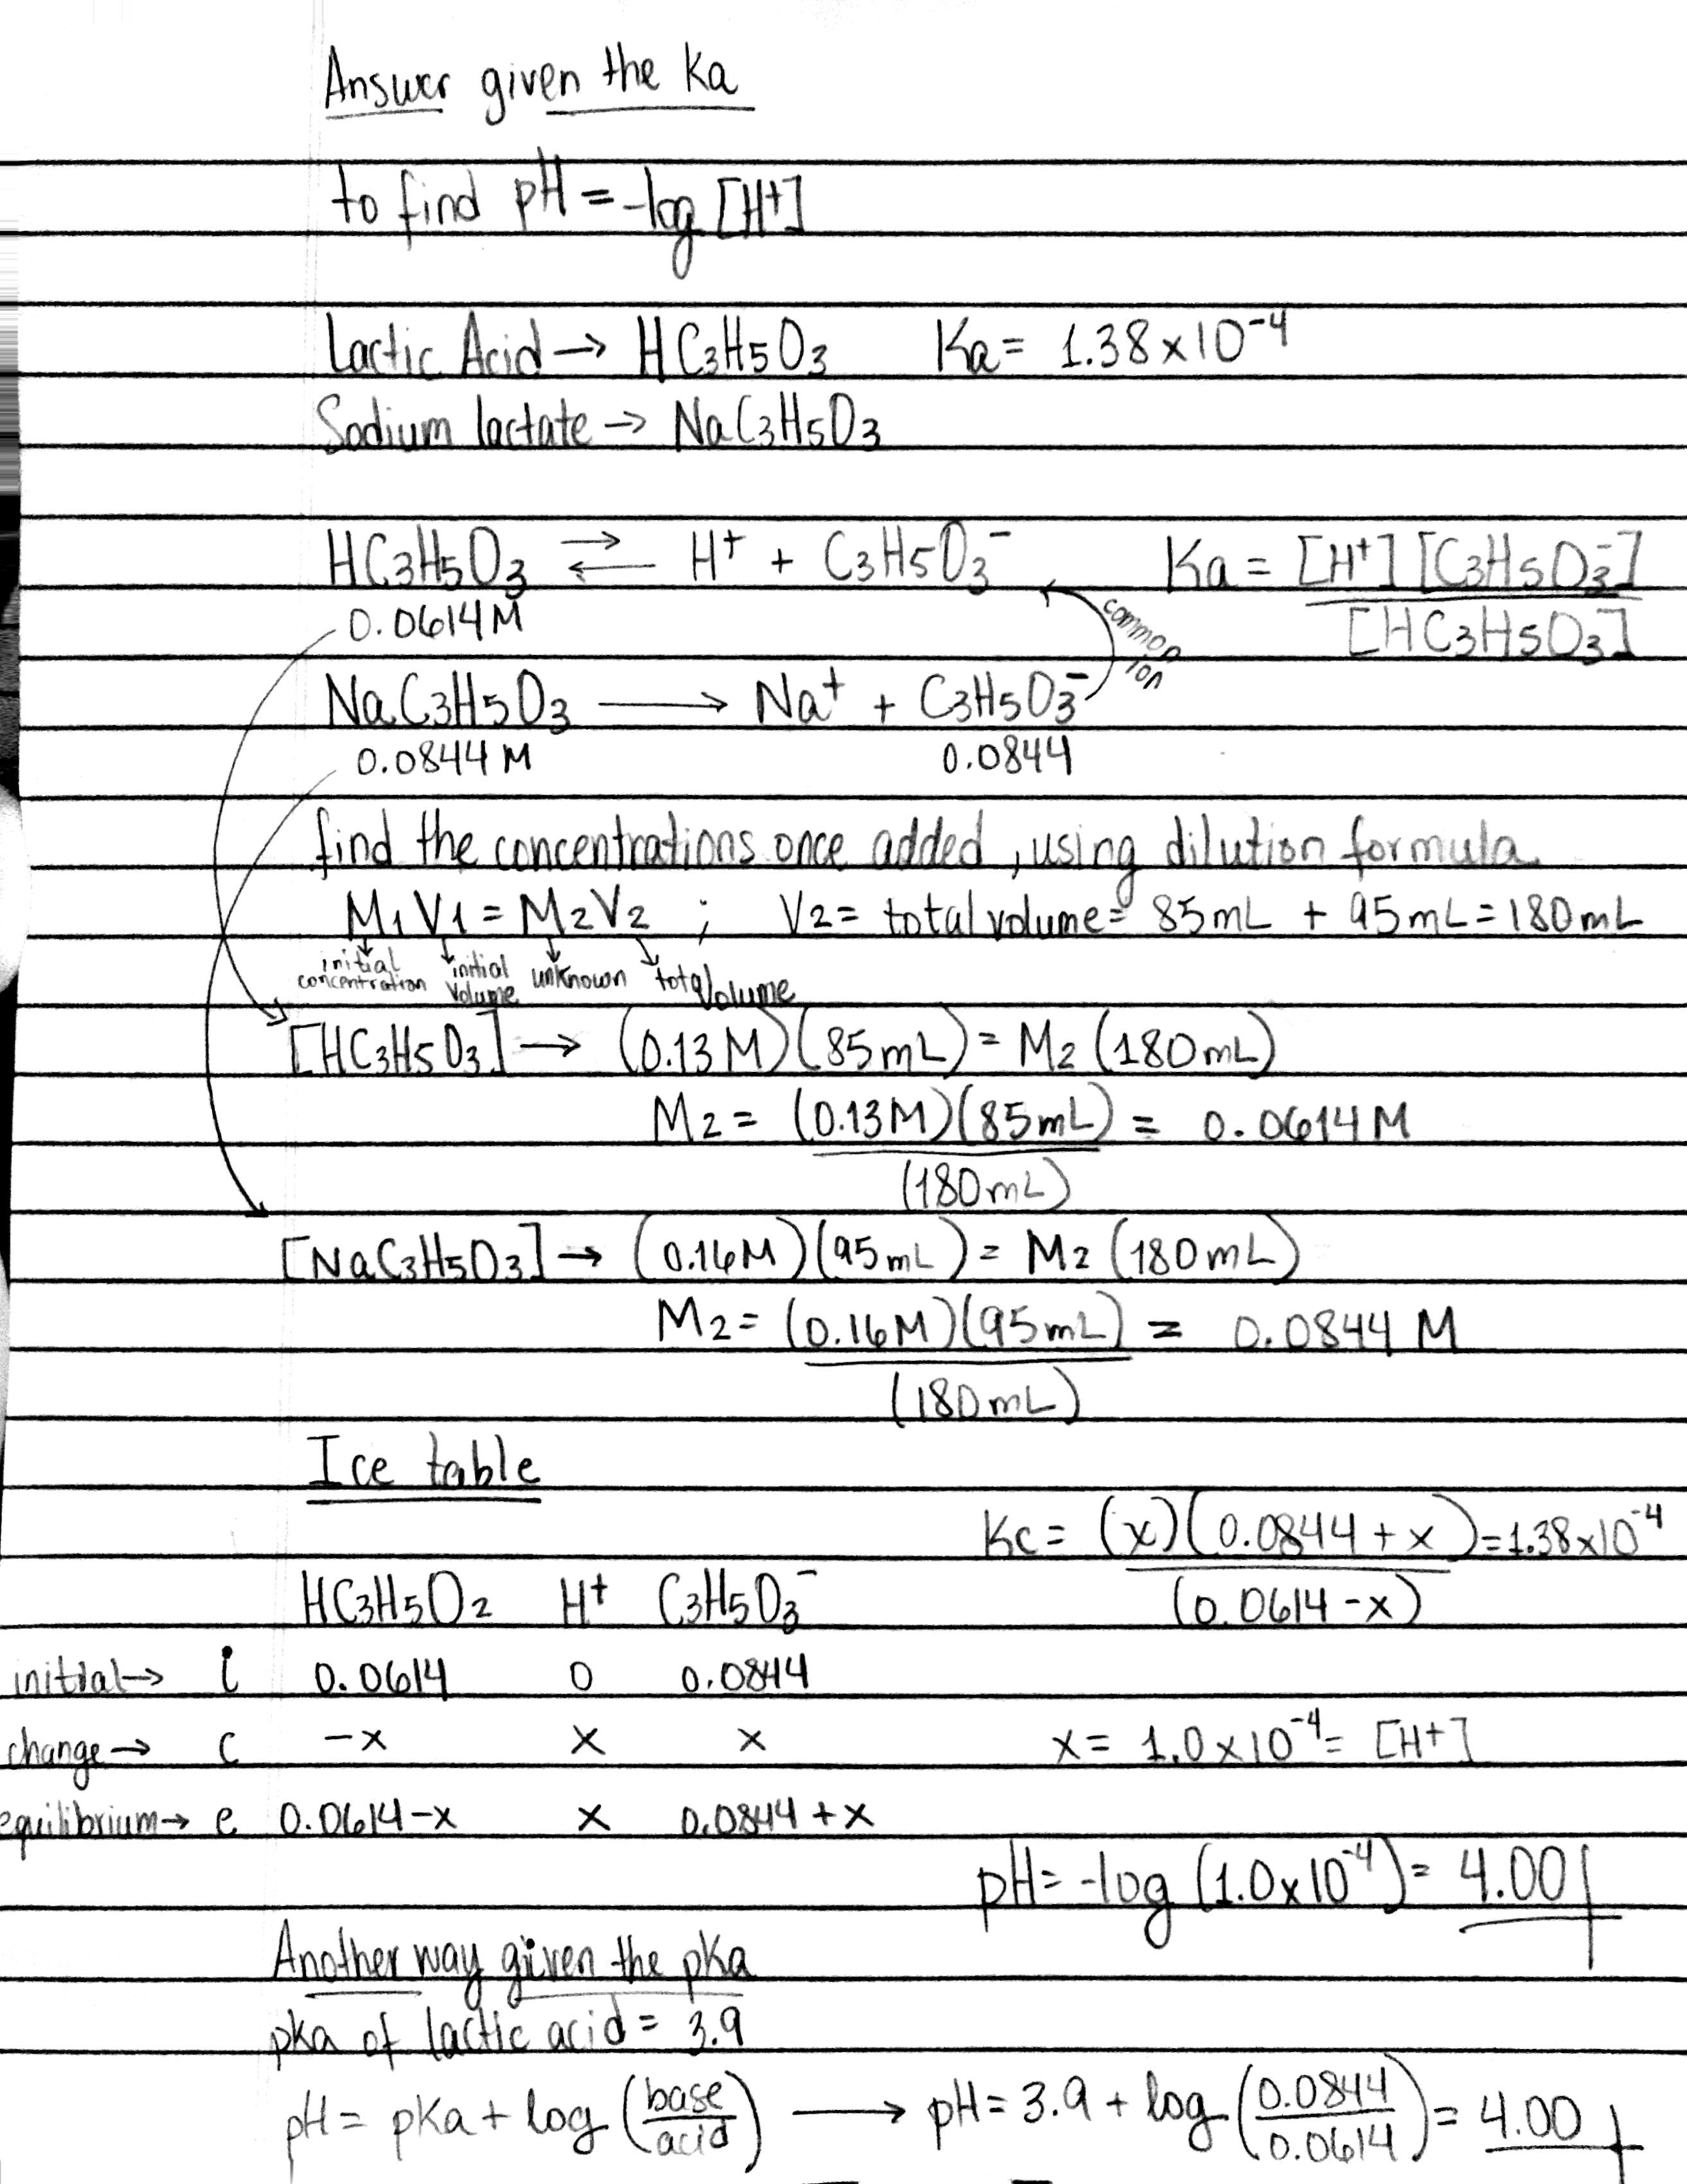 Answer given the Ka
to find pH = -log [H⁺]
Lactic Acid → HC₃H₅O₃ Ka = 1.38×10⁻⁴
Sodium lactate → NaC₃H₅O₃
HC₃H₅O₃ ⇄ H⁺ + C₃H₅O₃⁻ Ka = [H⁺][C₃H₅O₃⁻] / [HC₃H₅O₃]
0.0614 M
common ion
NaC₃H₅O₃ → Na⁺ + C₃H₅O₃⁻
0.0844 M 0.0844
find the concentrations once added, using dilution formula
M₁V₁ = M₂V₂ ; V₂ = total volume = 85mL + 95mL = 180mL
initial concentration initial volume unknown total volume
[HC₃H₅O₃] → (0.13 M)(85mL) = M₂ (180mL)
M₂ = (0.13M)(85mL) / (180mL) = 0.0614 M
[NaC₃H₅O₃] → (0.16M)(95mL) = M₂ (180mL)
M₂ = (0.16M)(95mL) / (180mL) = 0.0844 M
Ice table
Kc = (x)(0.0844 + x) / (0.0614 - x) = 1.38×10⁻⁴
HC₃H₅O₂ H⁺ C₃H₅O₃⁻
initial → i 0.0614 0 0.0844
change → c -x x x x = 1.0×10⁻⁴ = [H⁺]
equilibrium → e 0.0614-x x 0.0844+x
pH = -log (1.0×10⁻⁴) = 4.00
Another way given the pKa
pka of lactic acid = 3.9
pH = pKa + log (base/acid) → pH = 3.9 + log (0.0844/0.0614) = 4.00